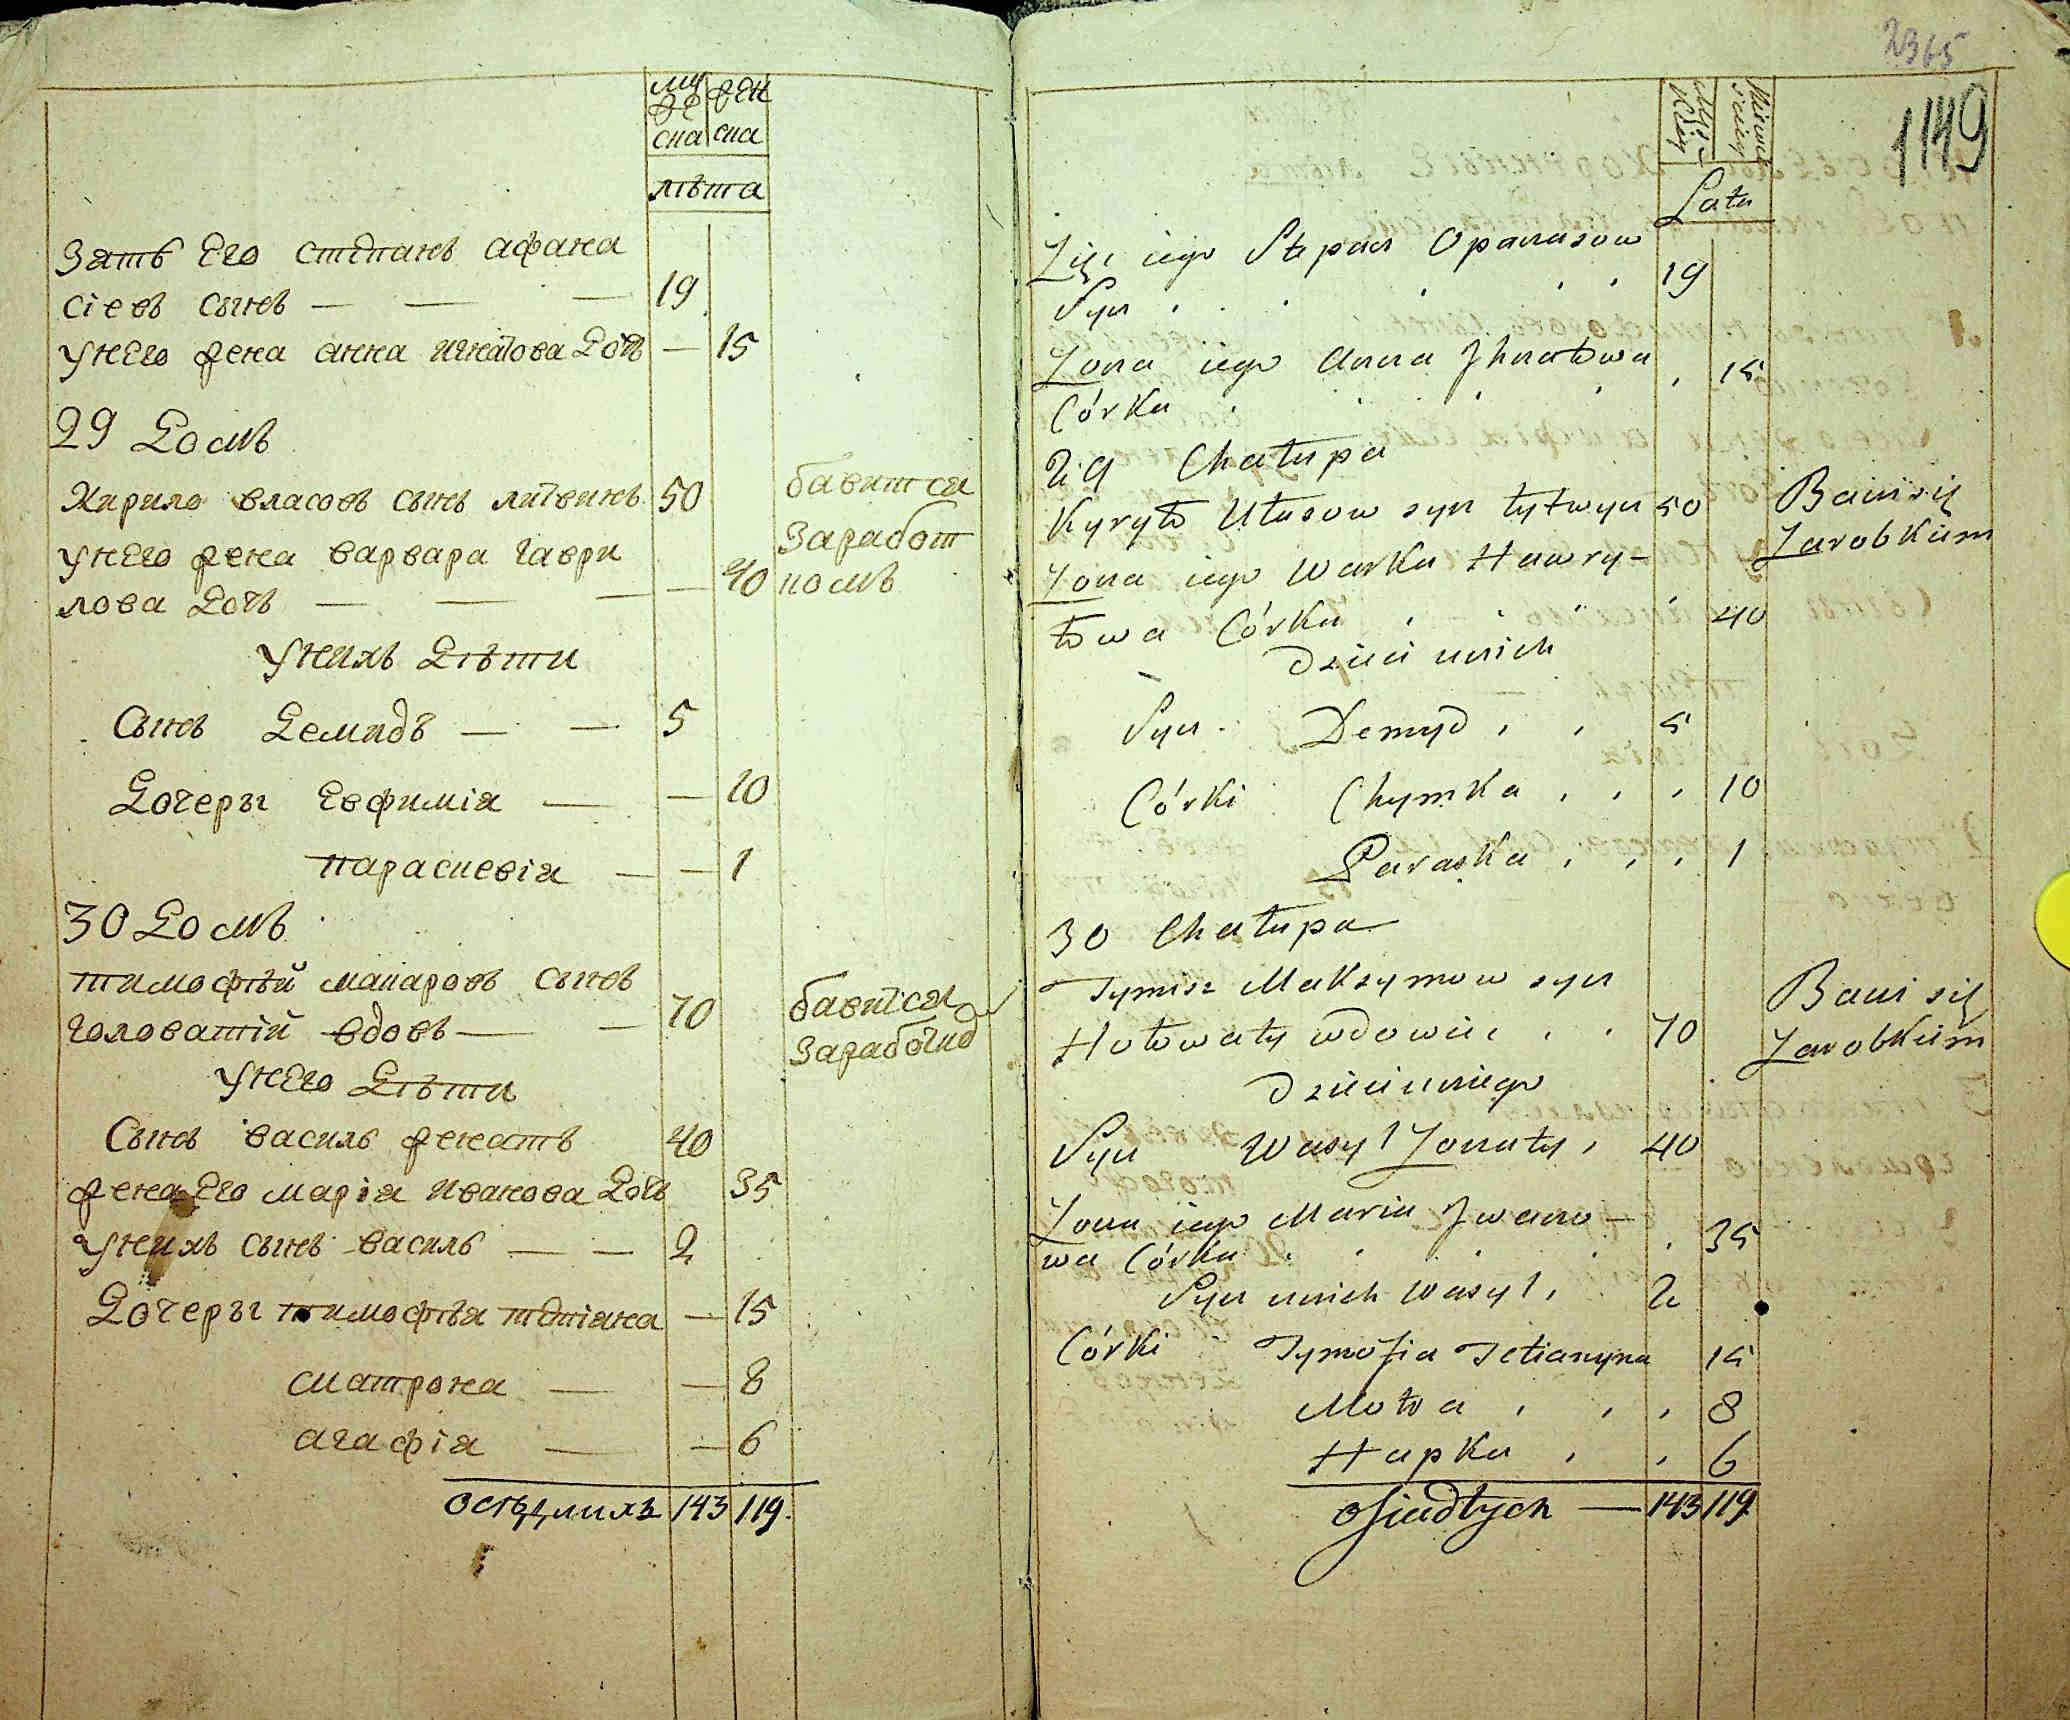 муже ска
жен ска
лѣта
Зать Его степанъ афана
сіевъ сынъ — — — 19
унЕго жена анна игнатова Дочь — 15
29 Домъ
Кирило власовъ сынъ литвинъ 50
бавитса
Заработ
комъ
унЕго жена варвара гаври
лова Дочь — — — — 40
унихъ Дѣти
Сынъ Демидъ — — 5
Дочеры Евфимія — — 10
параскевіа — — 1
30 Домъ
тимофѣй макаровъ сынъ
головатій вдовъ — — 70
бавитса
Заработко
унЕго Дѣти
Сынъ василь женатъ 40
жена Его маріа иванова Дочь 35
унихъ сынъ василь — — 2
Дочеры тимофѣя тетіана — 15
матрона — — 8
агафіа — — 6
осѣдлихъ 143 119.
2365
1149
Lata
Zięć iego Stepan Opanasow
Syn 19
Zona iego Anna Jhnatowa
Córka 15
29 Chałupa
Kyryło Ułasow syn Łytwyn 50
Bawi się
Zarobkiem
Zona iego Warka Hawry-
łowa Córka 40
Dzieci unich
Syn Demyd 5
Córki Chymka 10
Paraska 1
30 Chałupa
Tymisz Maksymow syn
Hołowaty wdowiec 70
Bawi się
Zarobkiem
Dzieci uniego
Syn Wasyl Zonaty 40
Zona iego Maria Jwano-
wa Córka 35
Syn unich Wasyl 2
Córki Tymofia Tetianyna 15
Motra 8
Hapka 6
osiadłych — 143 119